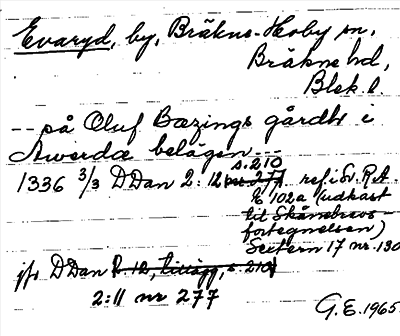 Evaryd, by, Bräkne-Hoby sn,
Bräkne hd,
Blek. l.
--- på Oluf Bæzings gårdh i
Awerdæ belägen ---
s. 210
1336 3/3 DDan 2:12 nr 277. ref. i Sv. R.A.
102a (udkast
til Skånebrevs-
fortegnelsen)
Sextern 17 nr. 130
jfr DDan 2:12, tillägg, s. 210
2:11 nr 277
G.E. 1965.